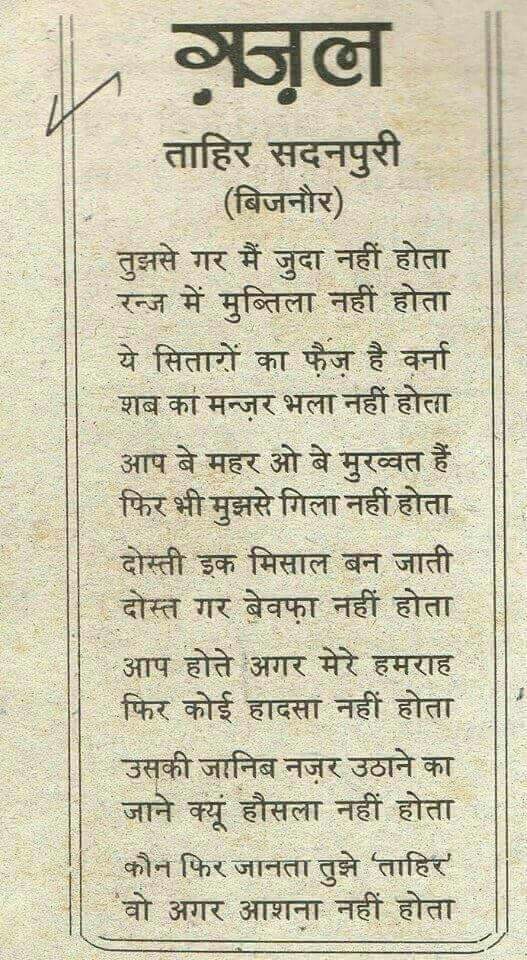 ग़ज़ल
ताहिर सदनपुरी
(बिजनौर)
तुझसे गर मैं जुदा नहीं होता
रन्ज में मुब्तिला नहीं होता
ये सितारों का फ़ैज़ है वर्ना
शब का मन्ज़र भला नहीं होता
आप बे महर ओ बे मुरव्वत हैं
फिर भी मुझसे गिला नहीं होता
दोस्ती इक मिसाल बन जाती
दोस्त गर बेवफ़ा नहीं होता
आप होते अगर मेरे हमराह
फिर कोई हादसा नहीं होता
उसकी जानिब नज़र उठाने का
जाने क्यूं हौसला नहीं होता
कौन फिर जानता तुझे 'ताहिर'
वो अगर आशना नहीं होता